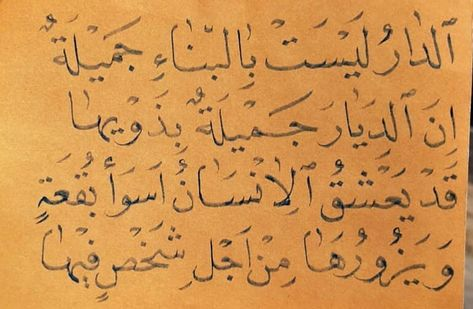 ٱلدَّارُ لَيْسَتْ بِالبِنَاءِ جَمِيْلَةٌ
اِنَ ٱلدِيَارَ جَمِيْلَةٌ بِذَوِيْهَا
قَدْ يَعْشقُ ٱلاِنْسَانُ اَسَوأَ بُقْعَةٍ
وَيَزُوْرُهَا مِنْ اَجْلِ شَخْصٍ فِيْهَا